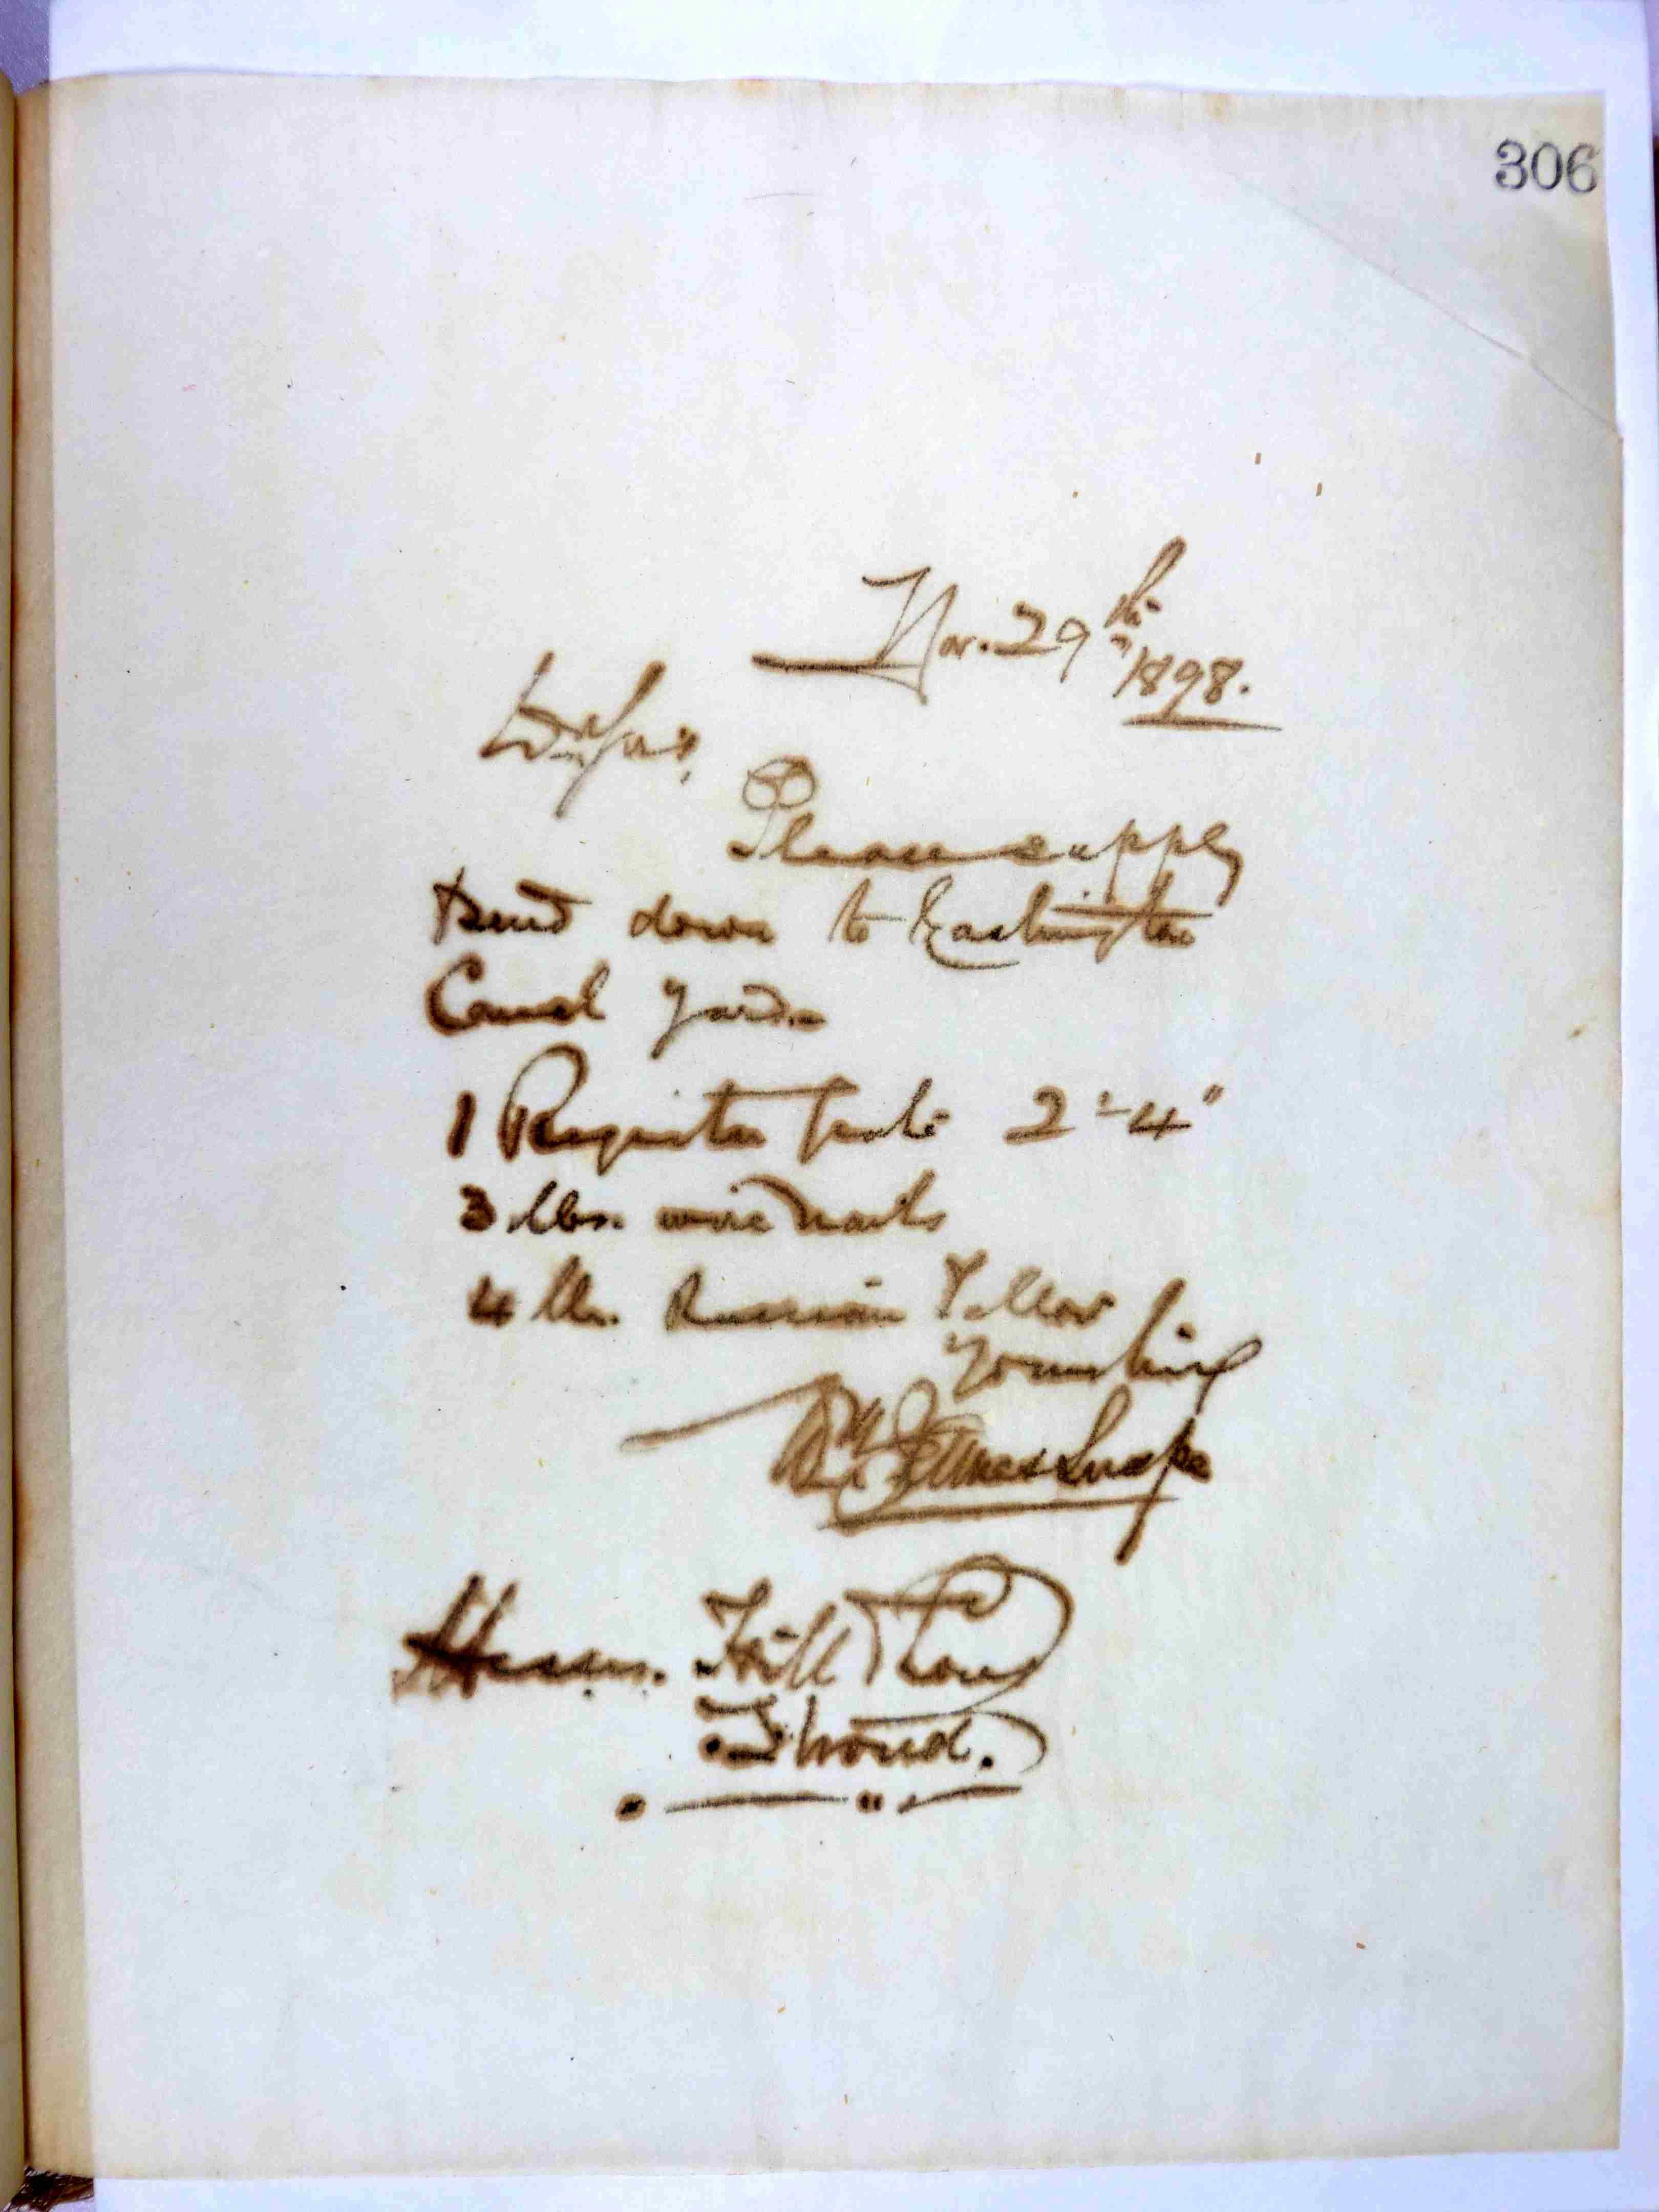 306
Nov. 29th
1898.
Dr Sirs,
Please supply
& send down to Eashington
Canal Yard.
1 Register Grate 2'-4"
3 lbs. wire nails
4 lbs. Russian Tallow
Yours truly
Messrs. Hill &
Stroud.